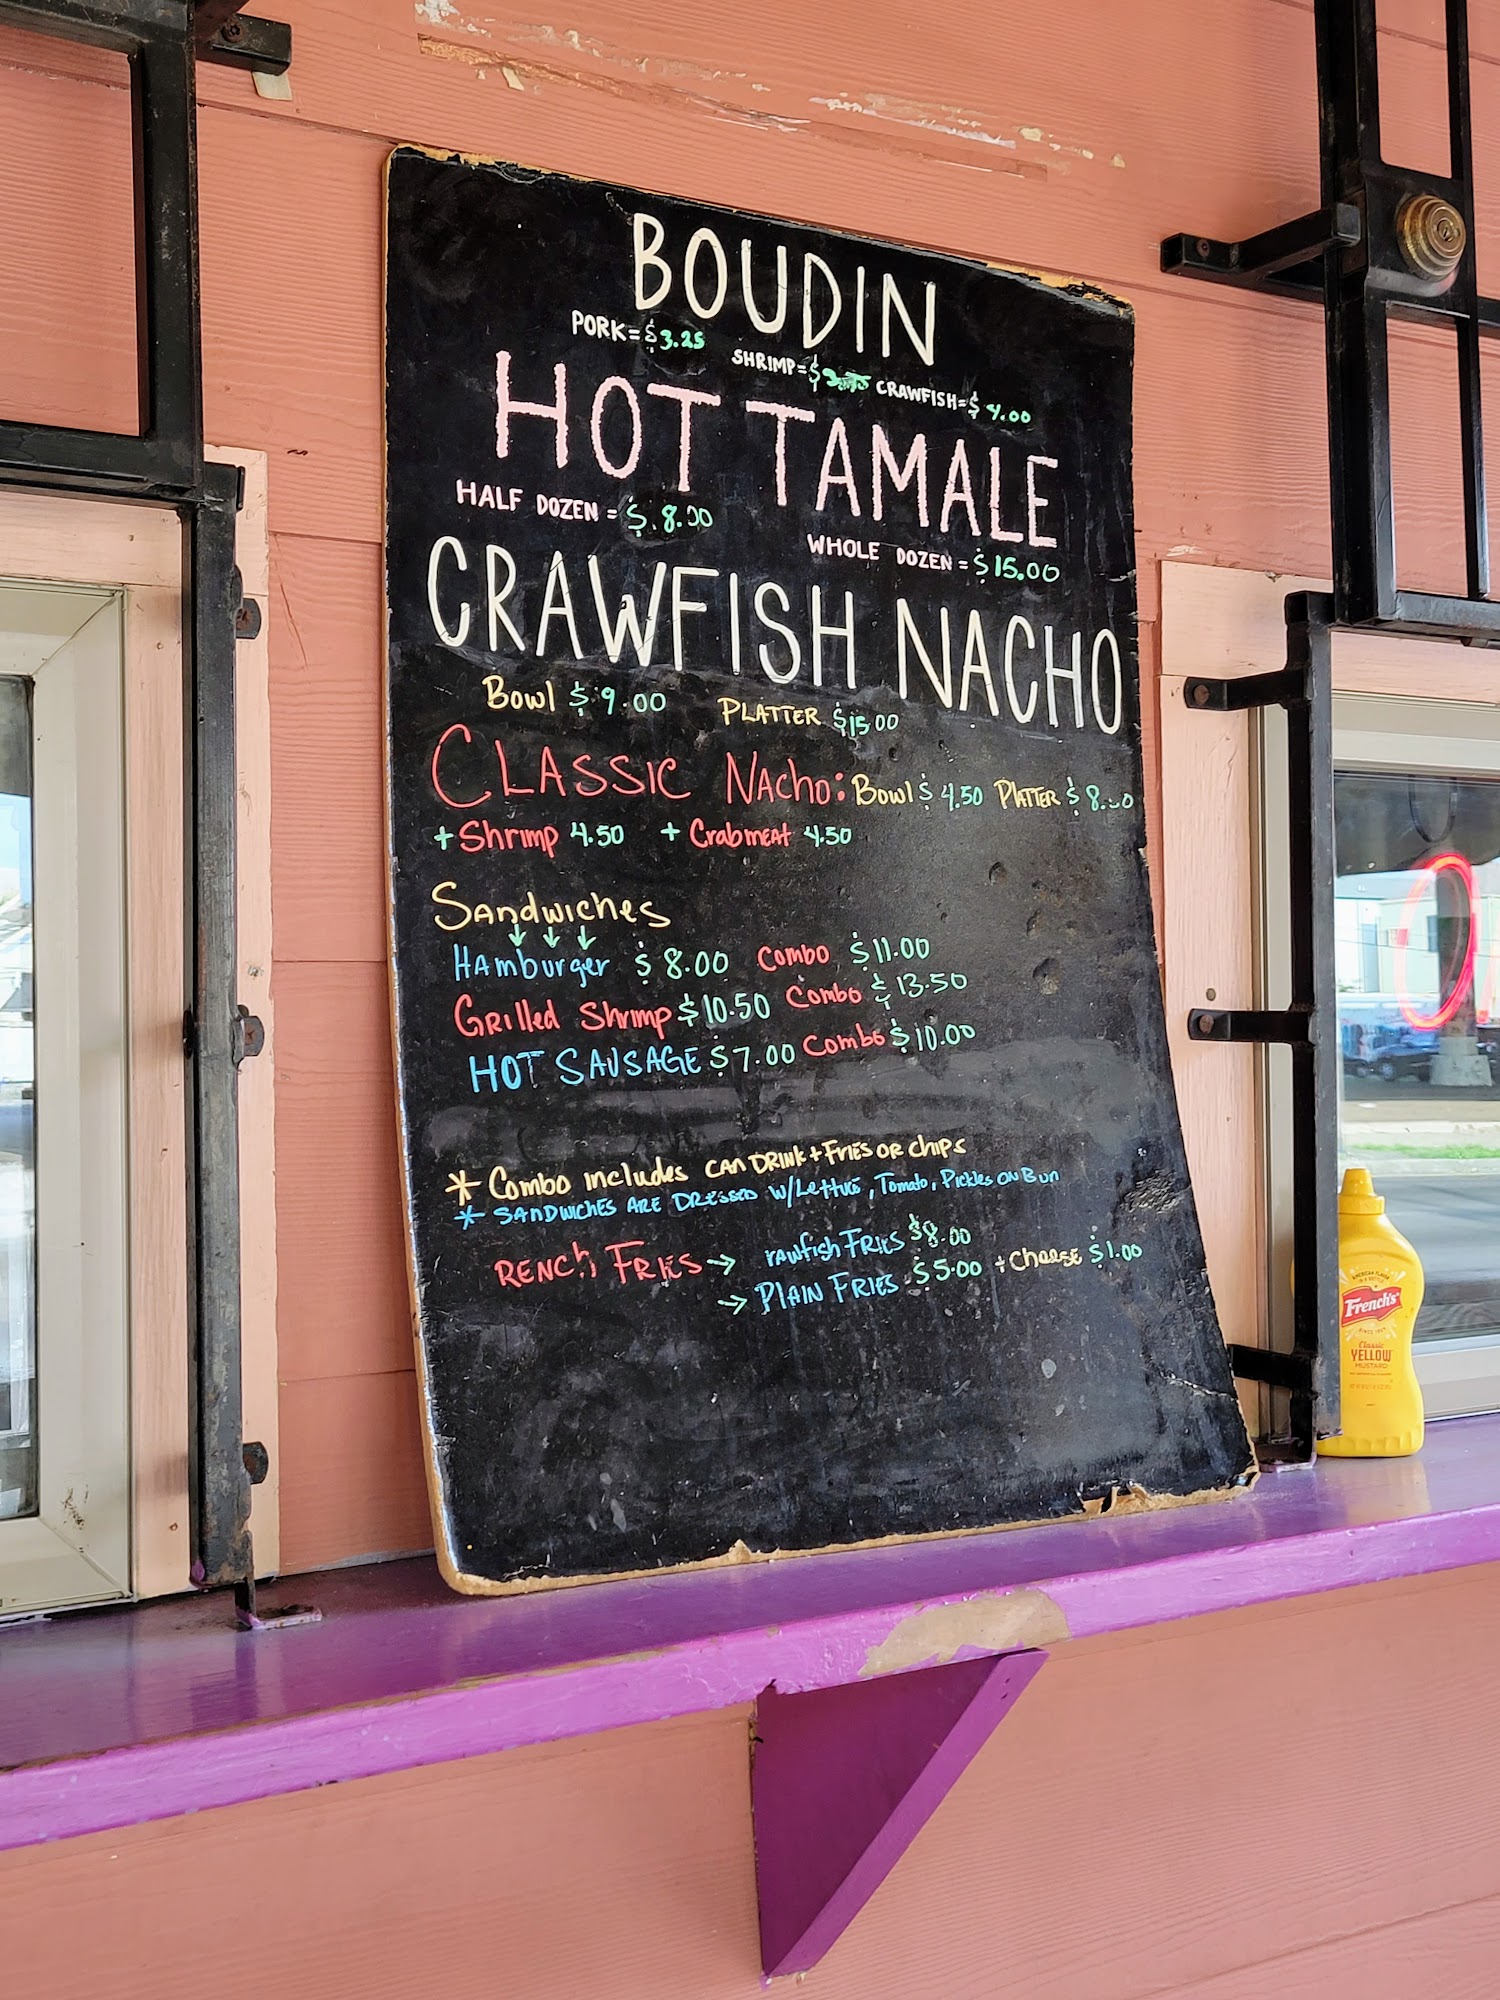 BOUDIN
PORK=$3.25 SHRIMP=$ CRAWFISH=$4.00
HOT TAMALE
HALF DOZEN = $8.00 WHOLE DOZEN = $15.00
CRAWFISH NACHO
Bowl $9.00 PLATTER $15.00
CLASSIC NAcho: Bowl $4.50 PlATTER $8.
+ Shrimp 4.50 + CrabmEAT 4.50
SANdwiches
HAmburger $8.00 Combo $11.00
GRilled Shrimp $10.50 Combo $13.50
HOT SAUSAGE $7.00 Combo $10.00
* Combo includes CAN DRINK + FRIES OR chips
* SANDWICHES ARE DRESSED W/LETTUCE, Tomato, Pickles ON Bun
RENCh FRIES → rawfish FRIES $8.00
→ PlAIN FRIES $5.00 + ChEESE $1.00
AMERICA'S FLAVOR
IN A BOTTLE
French's
SINCE 1904
Classic
YELLOW
MUSTARD